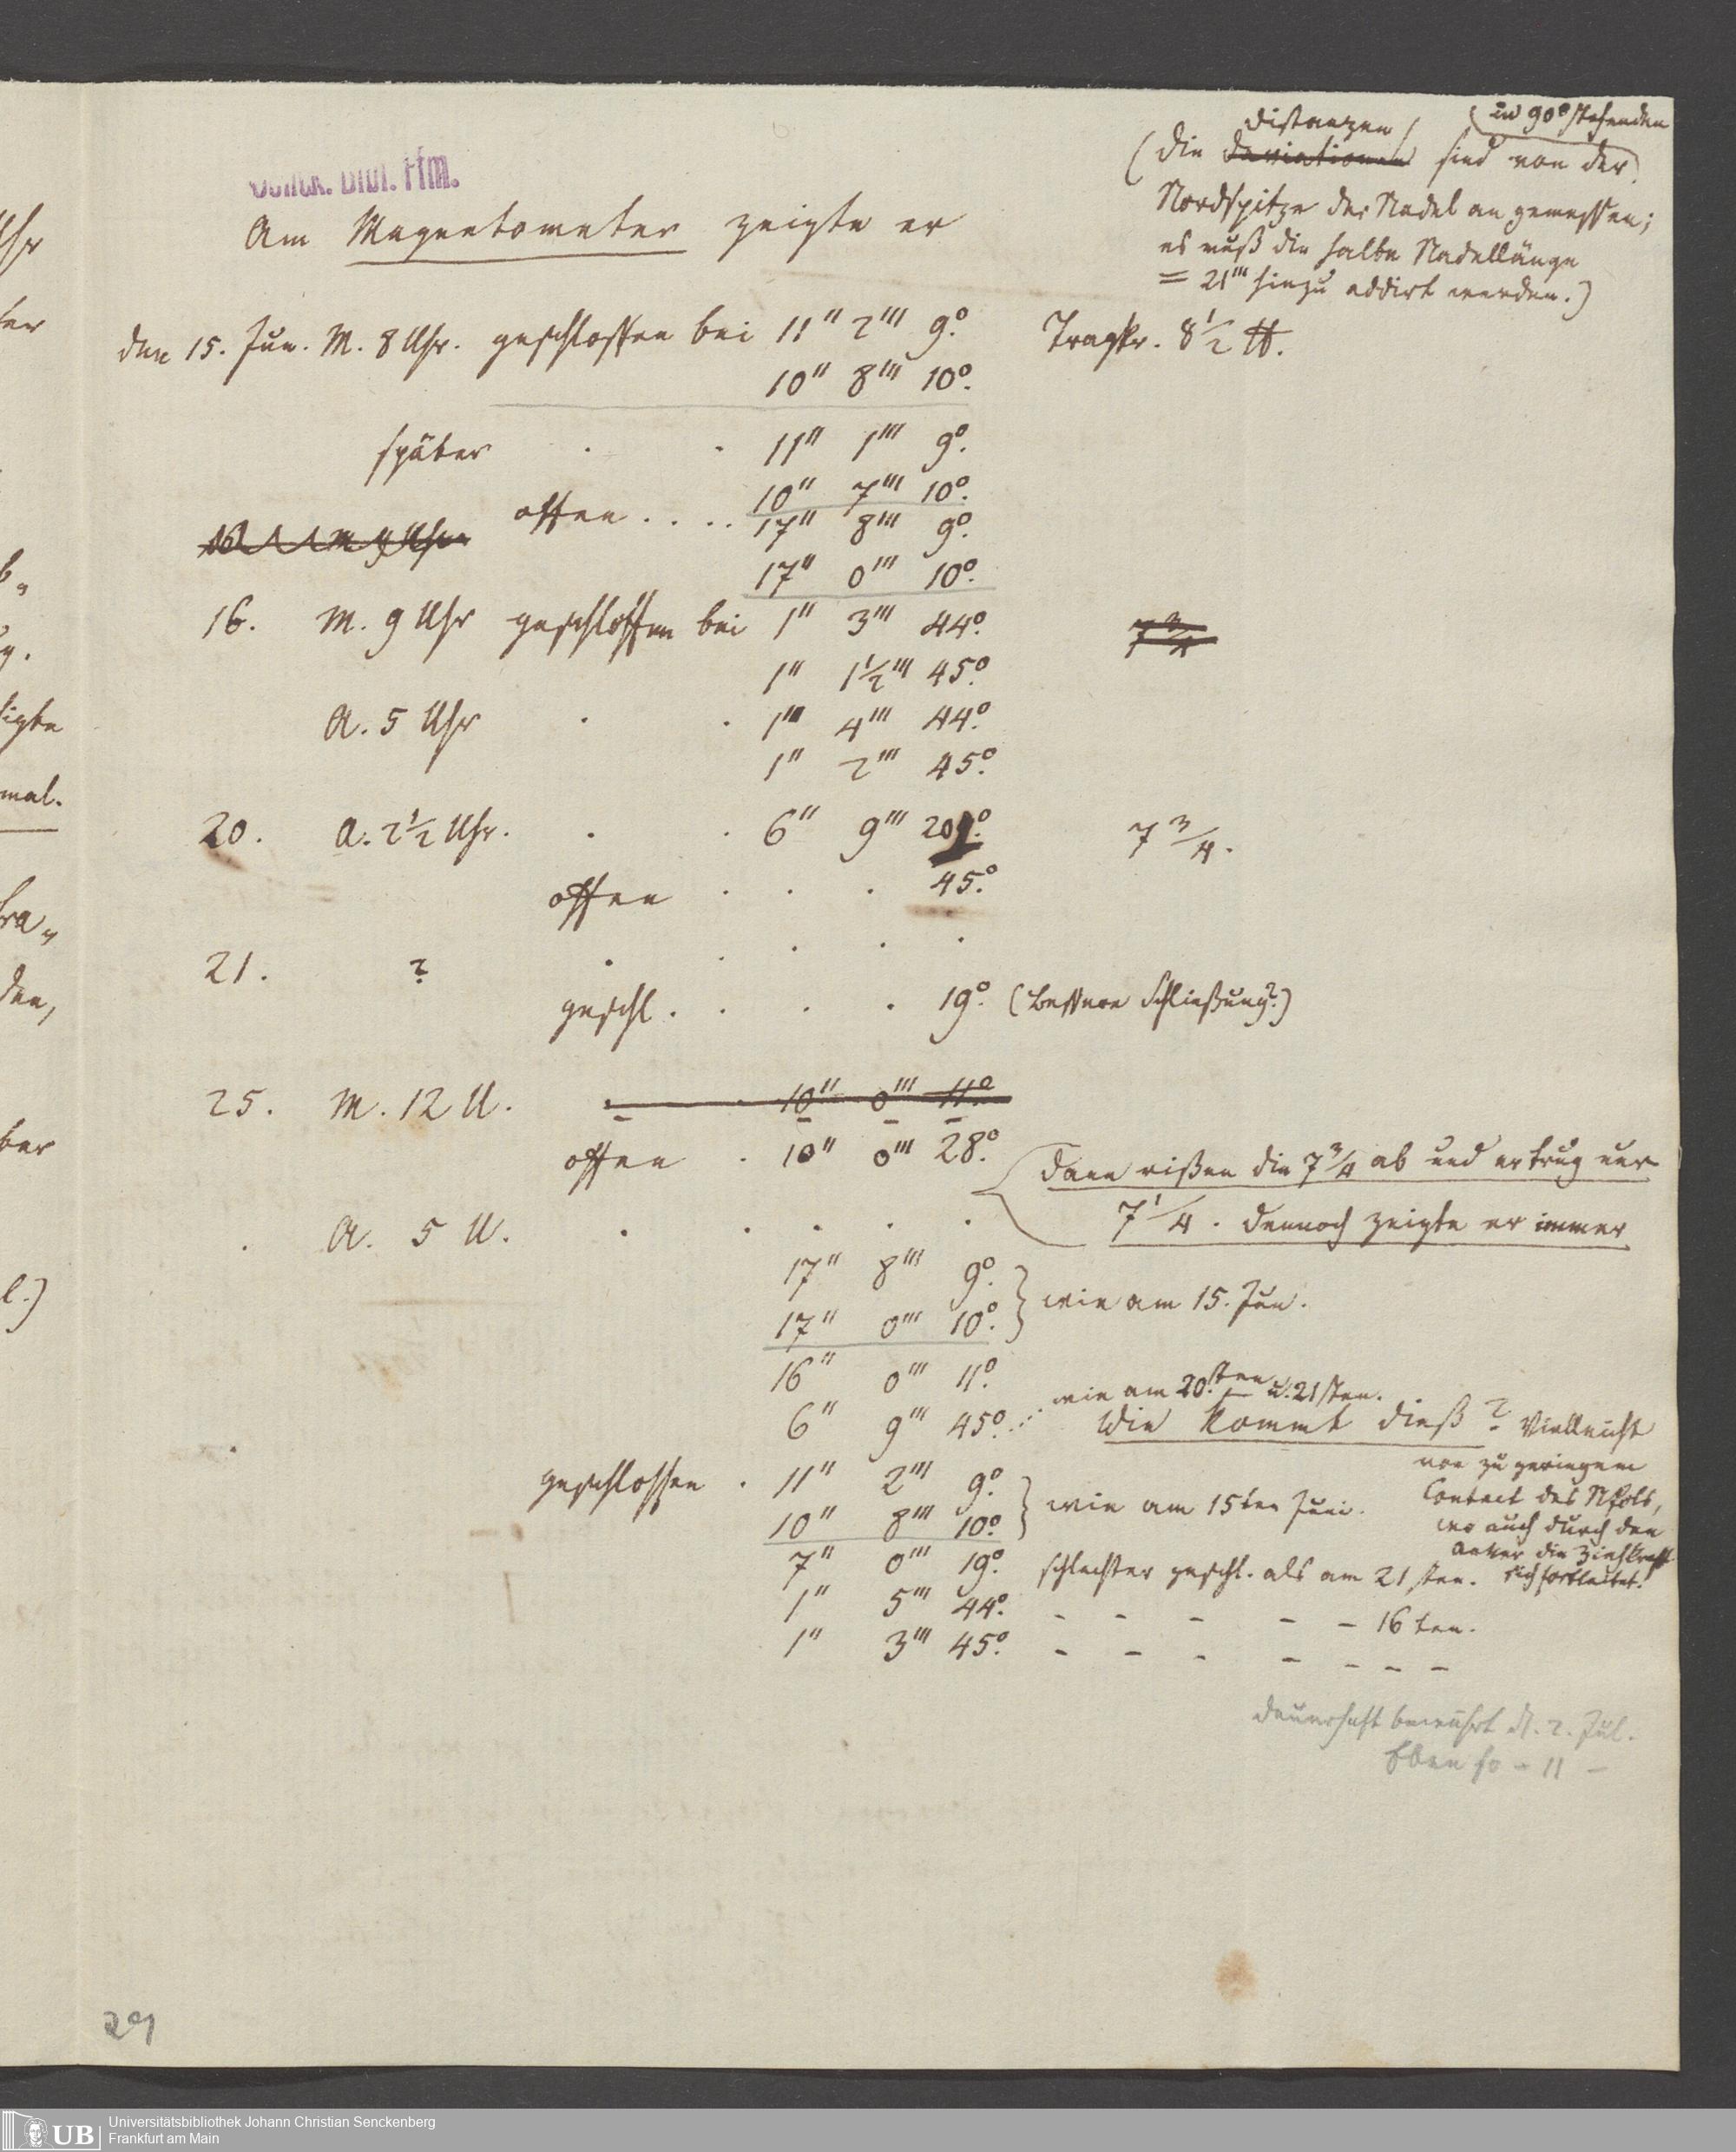 Senck. Bibl. Ffm.
Am Magnetometer zeigte er
(in 90° stehenden
Distanzen
(die Deviationen sind von der
Nordspitze der Nadel an gemessen;
es muß die halbe Nadellänge
= 21''' hinzu addirt werden.)
den 15. Jun. M. 8 Uhr. geschlossen bei 11'' 2''' 9°. Tragkr. 8 1/2 ℔.
10'' 8''' 10°.
später . . 11'' 1''' 9°.
10'' 7''' 10°.
offen . . . . 17'' 8''' 9°.
M. 9 Uhr
17'' 0''' 10°.
16. M. 9 Uhr geschlossen bei 1'' 3''' 44°. 7 3/4
1'' 1 1/2''' 45°.
A. 5 Uhr . . 1'' 4''' 44°.
1'' 2''' 45°.
20. A. 2 1/2 Uhr. . . 6'' 9''' 20°. 7 3/4.
offen . . . 45°.
21. ? . . . . .
geschl. . . . 19°. (bessere Schließung?)
25. M. 12 U. 10'' 0''' 11°
offen . 10'' 0''' 28°.
Dann rißen die 7 3/4 ab und er trug nur
. A. 5 U. . . . . . 7 1/4. Dennoch zeigte er immer
17'' 8''' 9°.
17'' 0''' 10°. } wie am 15. Jun.
16'' 0''' 11°.
6'' 9''' 45°. . : wie am 20.sten u. 21sten.
Wie kommt dieß? Vielleicht
von zu geringem
Contact des NPols,
wo auch durch den
Anker die Ziehkraft
sich fortleitet.
geschlossen . 11'' 2''' 9°.
10'' 8''' 10°. } wie am 15ten Juni.
7'' 0''' 19°. schlechter geschl. als am 21sten.
1'' 5''' 44°. - - - - - 16ten.
1'' 3''' 45°. - - - - - - -
dauerhaft d. 2. Jul.
Eben so - 11 -
29
UB
Universitätsbibliothek Johann Christian Senckenberg
Frankfurt am Main